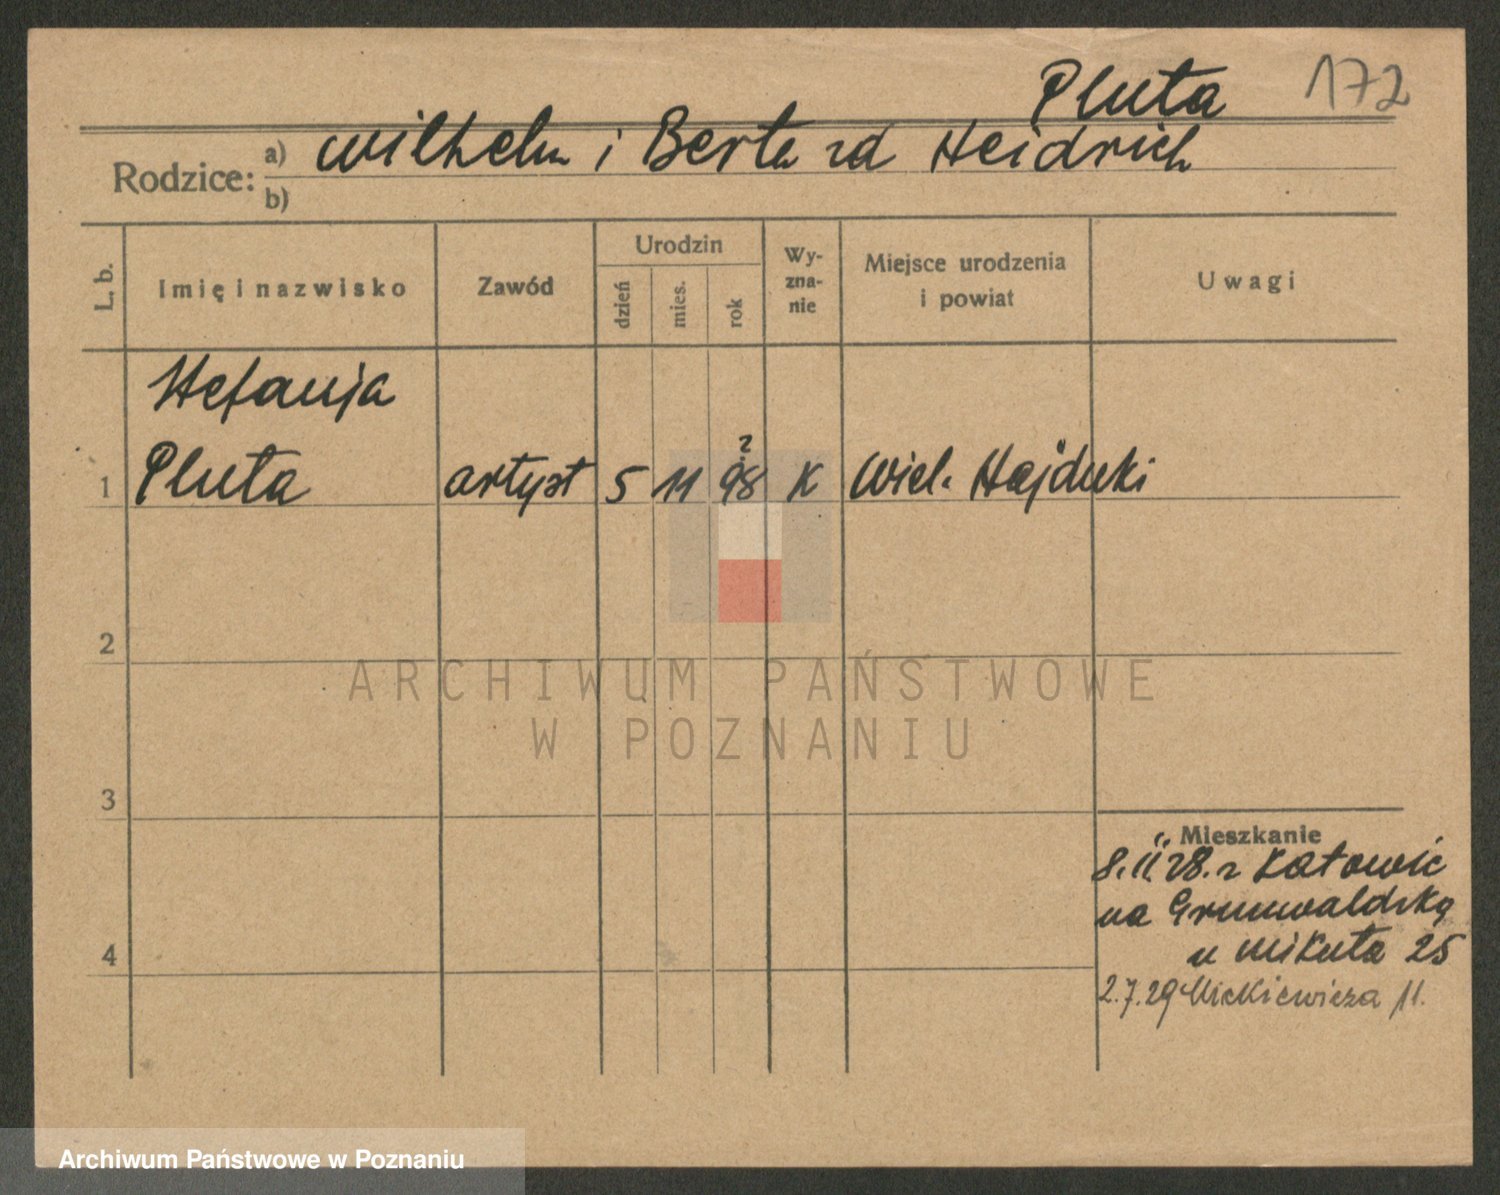 Pluta 172
Rodzice: a) Wilhelm i Berta zd Heidrich
b)
L. b. Imię i nazwisko Zawód Urodzin dzień mies. rok Wy-zna-nie Miejsce urodzenia i powiat Uwagi
Stefanja
1 Pluta artyst 5 11 98 ? K Wiel. Hajduki
2
3
4
Mieszkanie
8.II.28. z Katowic
na Grunwaldzką
u Mikuta 25
2.7.29 Mickiewicza 11.
ARCHIWUM PAŃSTWOWE
W POZNANIU
Archiwum Państwowe w Poznaniu